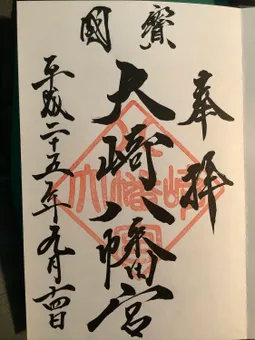 國寳
奉拝
大崎八幡宮
平成二十五年九月十四日